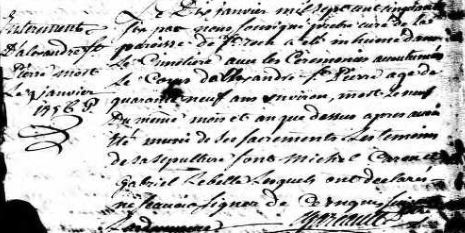 Enterrement
D'alexandre St
Pierre mort
Le 9 janvier
1756
Le Dix janvier mil sept cent cinquante
Six par nous soussigné prêtre curé de la
paroisse de St Roch a été inhumé dans
Le Cimetière avec les Ceremonies accoutumées
Le Corps d'alexandre St Pierre agé de
quarante neuf ans environ, mort le neuf
Du meme mois et an que dessus apres avoir
été muni de ses sacrements Les temoins
de sa sepulture sont Michel Caron et
Gabriel Lebelle Lesquels ont declaré
ne scavoir signer de ce enquis suivant
L'ordonnance